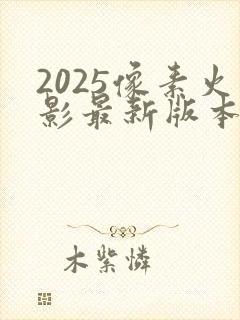 2025像素火
影最新版本
木紫怜